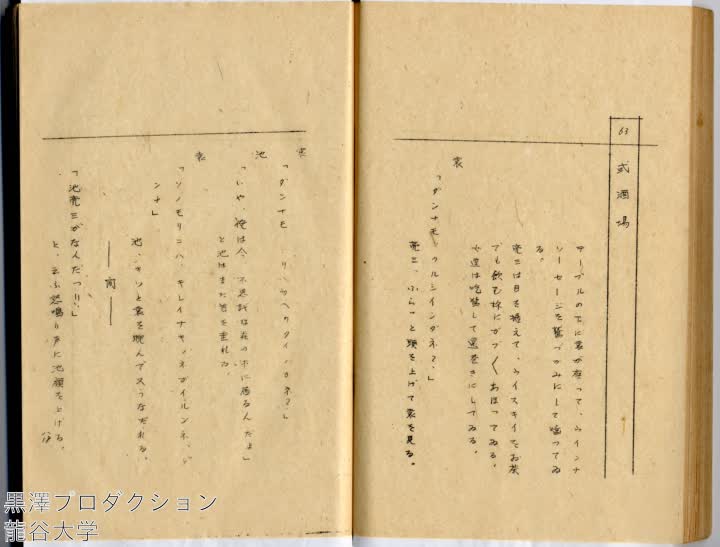 63
或酒場
テーブルの下に裳が座って、ウインナ
ソーセージを鷲づかみにして噛つてゐ
る。
亮三は目を据えて、ウイスキイをお茶
でも飲む様にガブ〱あほってゐる。
女達は吃驚して遠巻きにしてゐる。
裳
「ダンナモ、クルシインダネ？」
亮三、ふら〱と頭を上げて裳を見る。
「ダンナモ
「いや、俺は今、不思議な森の中に居るんだよ」
と池はまた首を垂れる。
裳
「ソノモリニハ、キレイナキツネガイルンネ、ダ
ンナ」
池、キッと裳を睨んで又うなだれる。
―― 間 ――
「池亮三がなんだっ!!」
と、云ふ怒鳴り声に池顔を上げる。
黒澤プロダクション
龍谷大学